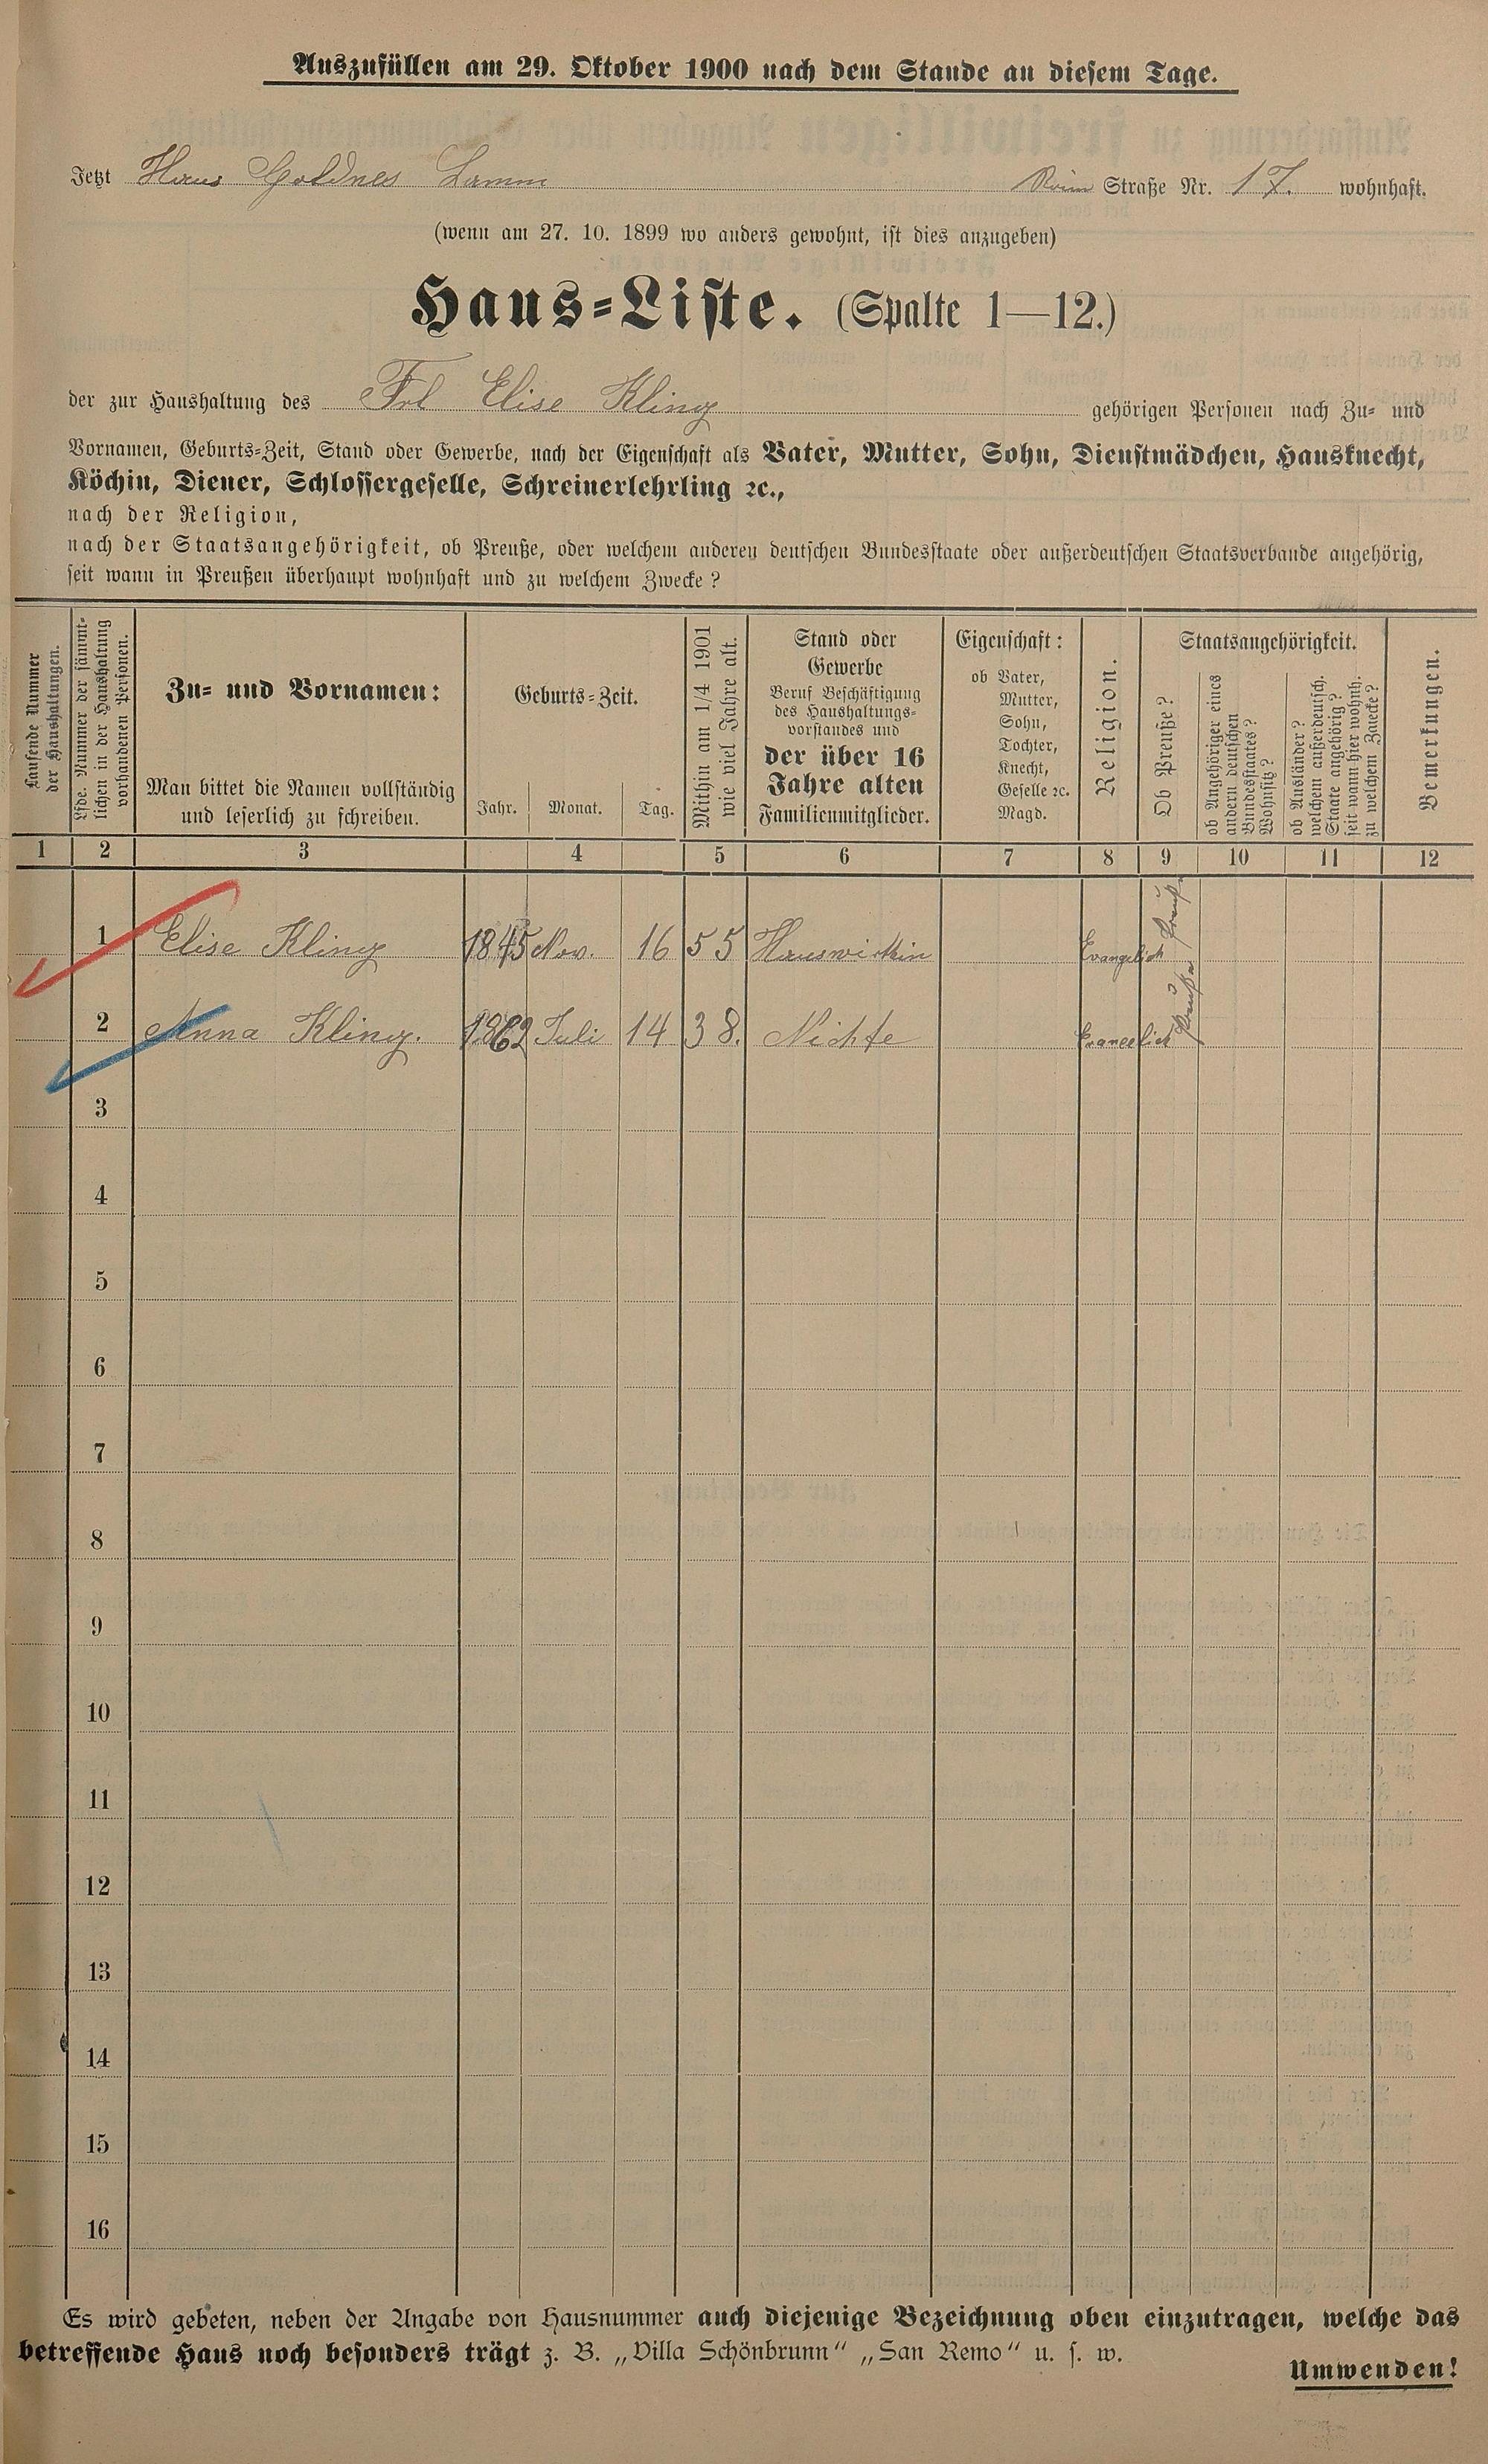 Auszufüllen am 29. Oktober 1900 nach dem Stande an diesem Tage.
Jetzt Haus Goldnes Lamm Straße Nr. 17. wohnhaft.
(wenn am 27. 10. 1899 wo anders gewohnt, ist dies anzugeben)
Haus-Liste. (Spalte 1—12.)
der zur Haushaltung des Frl Elise Kling gehörigen Personen nach Zu- und
Vornamen, Geburts-Zeit, Stand oder Gewerbe, nach der Eigenschaft als Vater, Mutter, Sohn, Dienstmädchen, Hausknecht,
Köchin, Diener, Schlossergeselle, Schreinerlehrling ꝛc.,
nach der Religion,
nach der Staatsangehörigkeit, ob Preuße, oder welchem anderen deutschen Bundesstaate oder außerdeutschen Staatsverbande angehörig,
seit wann in Preußen überhaupt wohnhaft und zu welchem Zwecke?
Laufende Nummer
der Haushaltungen.
Lfde. Nummer der sämmt-
lichen in der Haushaltung
vorhandenen Personen.
Zu- und Vornamen:
Man bittet die Namen vollständig
und leserlich zu schreiben.
Geburts-Zeit.
Jahr. Monat. Tag.
Mithin am 1/4 1901
wie viel Jahre alt.
Stand oder
Gewerbe
Beruf Beschäftigung
des Haushaltungs-
vorstandes und
der über 16
Jahre alten
Familienmitglieder.
Eigenschaft:
ob Vater,
Mutter,
Sohn,
Tochter,
Knecht,
Geselle ꝛc.
Magd.
Religion.
Staatsangehörigkeit.
Ob Preuße?
ob Angehöriger eines
andern deutschen
Bundesstaates?
Wohnsitz?
ob Ausländer?
welchem außerdeutsch.
Staate angehörig?
seit wann hier wohnh.
zu welchem Zwecke?
Bemerkungen.
1 2 3 4 5 6 7 8 9 10 11 12
1 Elise Kling 1845 Nov. 16 55 Hauswirthin Evangelich
2 Anna Kling. 1862 Juli 14 38. Nichte Evangelich Preuße
3
4
5
6
7
8
9
10
11
12
13
14
15
16
Es wird gebeten, neben der Angabe von Hausnummer auch diejenige Bezeichnung oben einzutragen, welche das
betreffende Haus noch besonders trägt z. B. „Villa Schönbrunn“ „San Remo“ u. s. w.
Umwenden!